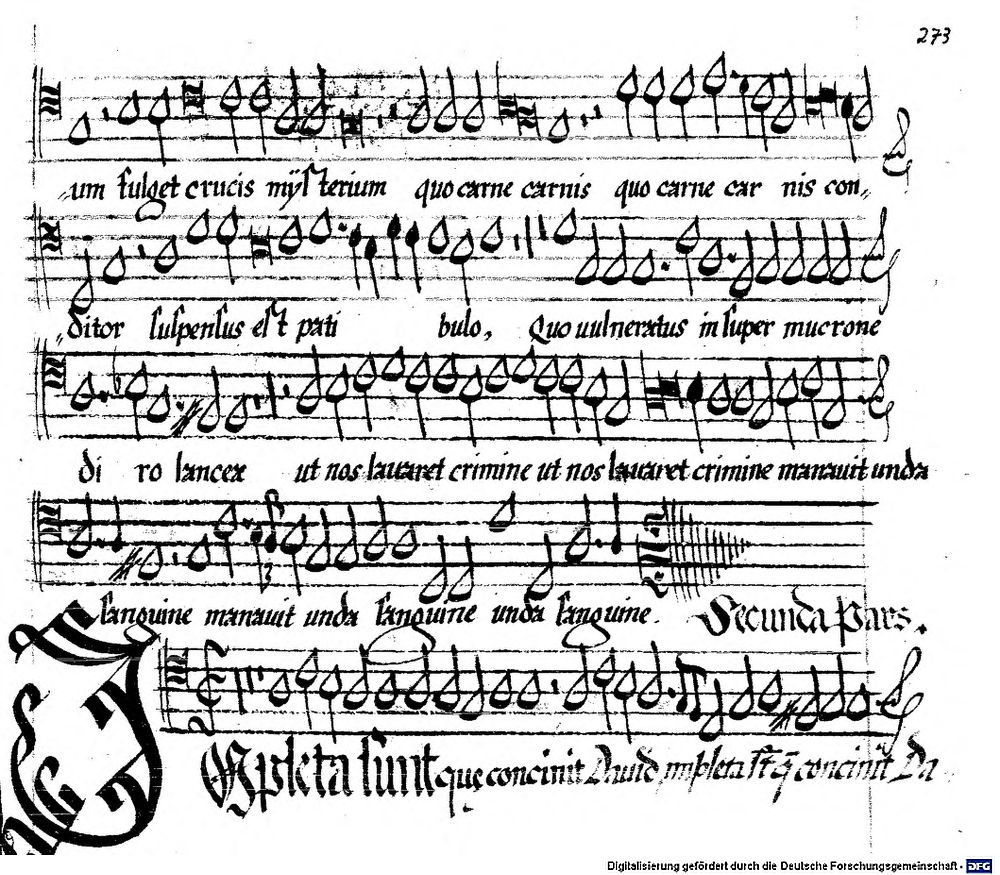 273
um fulget crucis mÿsterium quo carne carnis quo carne car nis con
ditor suspensus est pati bulo, Quo uulneratus in super mucrone
di ro lanceæ ut nos lauaret crimine ut nos lauaret crimine manauit unda
sanguine manauit unda sanguine unda sanguine. Secunda Pars.
Impleta sunt que concinit Dauid impleta st̄ q̄ concinit Da
Digitalisierung gefördert durch die Deutsche Forschungsgemeinschaft - DFG